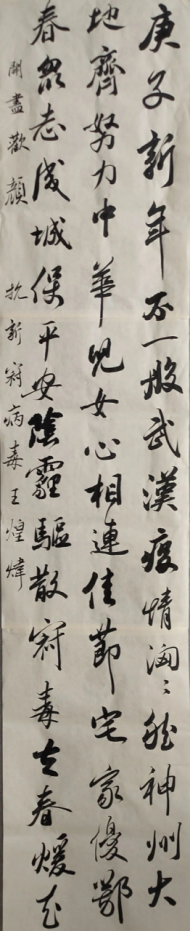 庚子新年不一般武漢疫情洶々然神州大
地齊努力中華兒女心相連佳節宅家優鄂
春眾志成城保平安陰霾驅散冠毒去春煖花
開盡歡顏 抗新冠病毒王煌煒